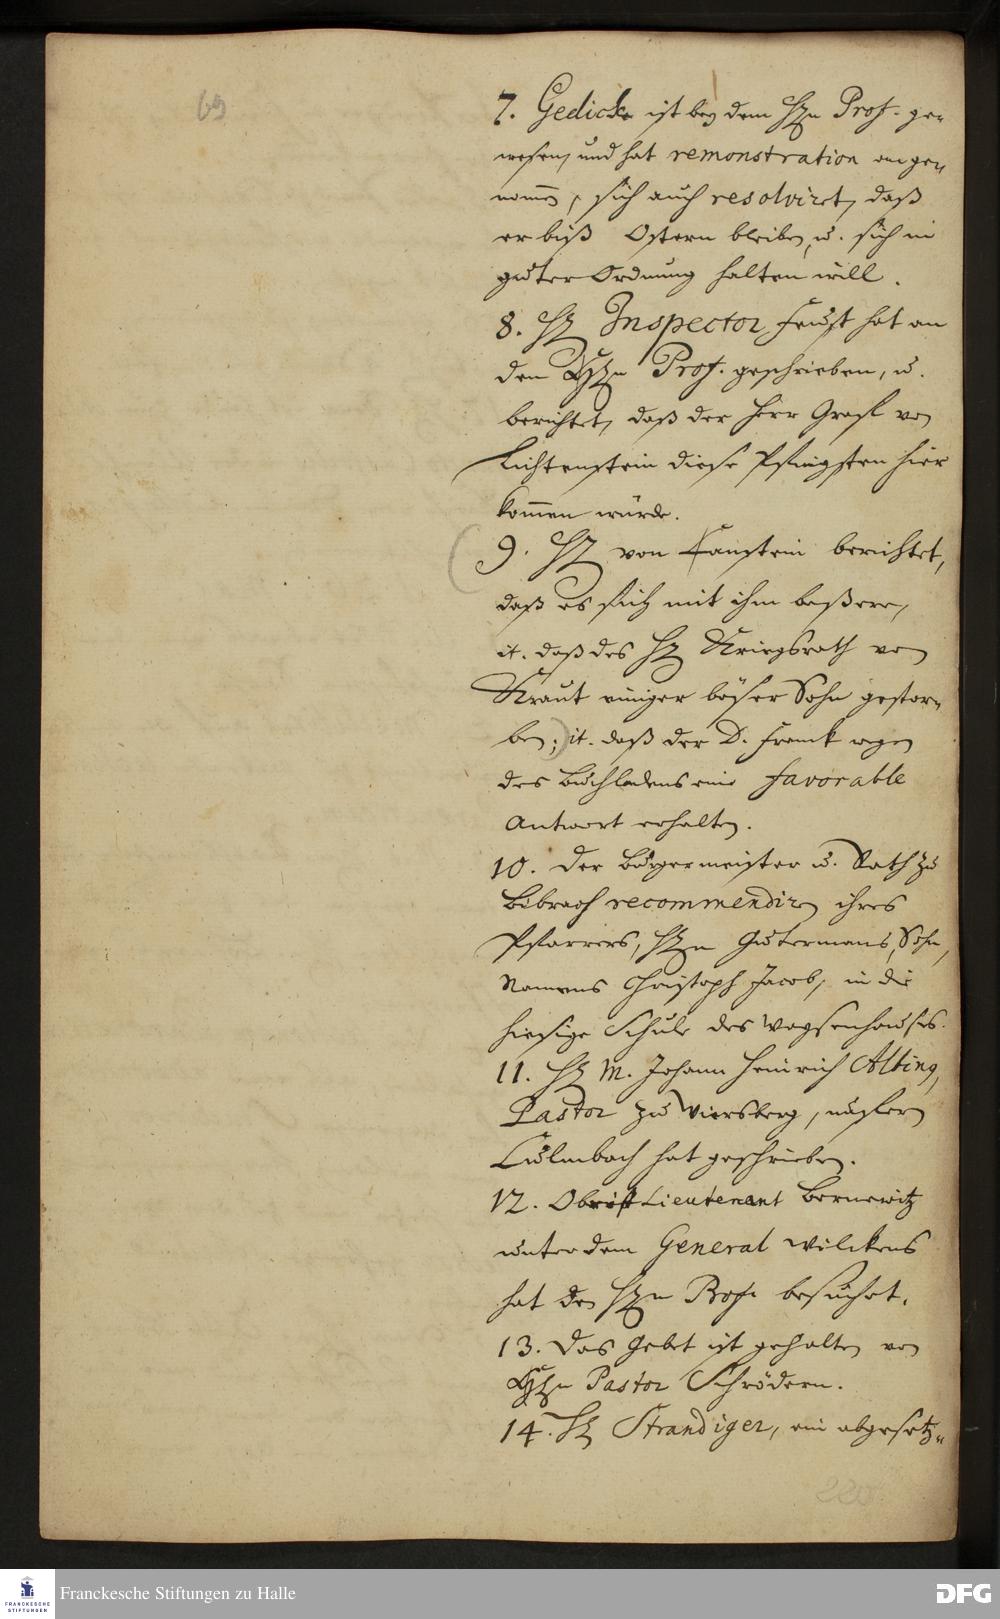 69
7. Gedicke ist bey dem Hrn Prof. ge-
wesen, und hat remonstration ange-
nom̄en, sich auch resolviret, daß
er biß Ostern bleiben, u. sich in
guter Ordnung halten will.
8. Hr Inspector Faust hat an
den Hrn Prof. geschrieben, u.
berichtet, daß der Herr Graf von
Lichtenstein diese Pfingsten hier
kom̄en würde.
9. Hr von Canstein berichtet,
daß es sich mit ihm beßere,
it. daß des Hr Kriegsrath von
Kraut einiger böser Sohn gestor-
ben; it. daß der D. Franck wegen
des Buchladens eine favorable
Antwort erhalten.
10. Der Bürgermeister u. Rath zu
Bibrach recommendiren ihres
Pfarrers, Hrn Gutermans, Sohn,
Namens Christoph Jacob, in die
hiesige Schule des Waysenhauses.
11. Hr M. Johann Heinrich Alting,
Pastor zu Wiersberg, unfern
Culmbach hat geschrieben.
12. Obrist Lieutenant Bernewitz
unter dem General Wilckens
hat den Hrn Prof. besuchet.
13. Das Gebet ist gehalten von
Hrn Pastor Schrödern.
14. Hr Strandiger, ein abgesetz-
220
Franckesche Stiftungen zu Halle
FRANCKESCHE
STIFTUNGEN
DFG